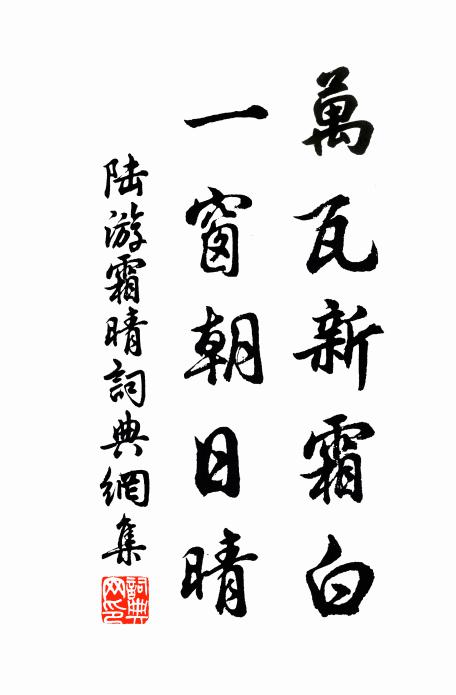 萬瓦新霜白
一窗朝日晴
陸游霜晴詞典網集
詞典網印